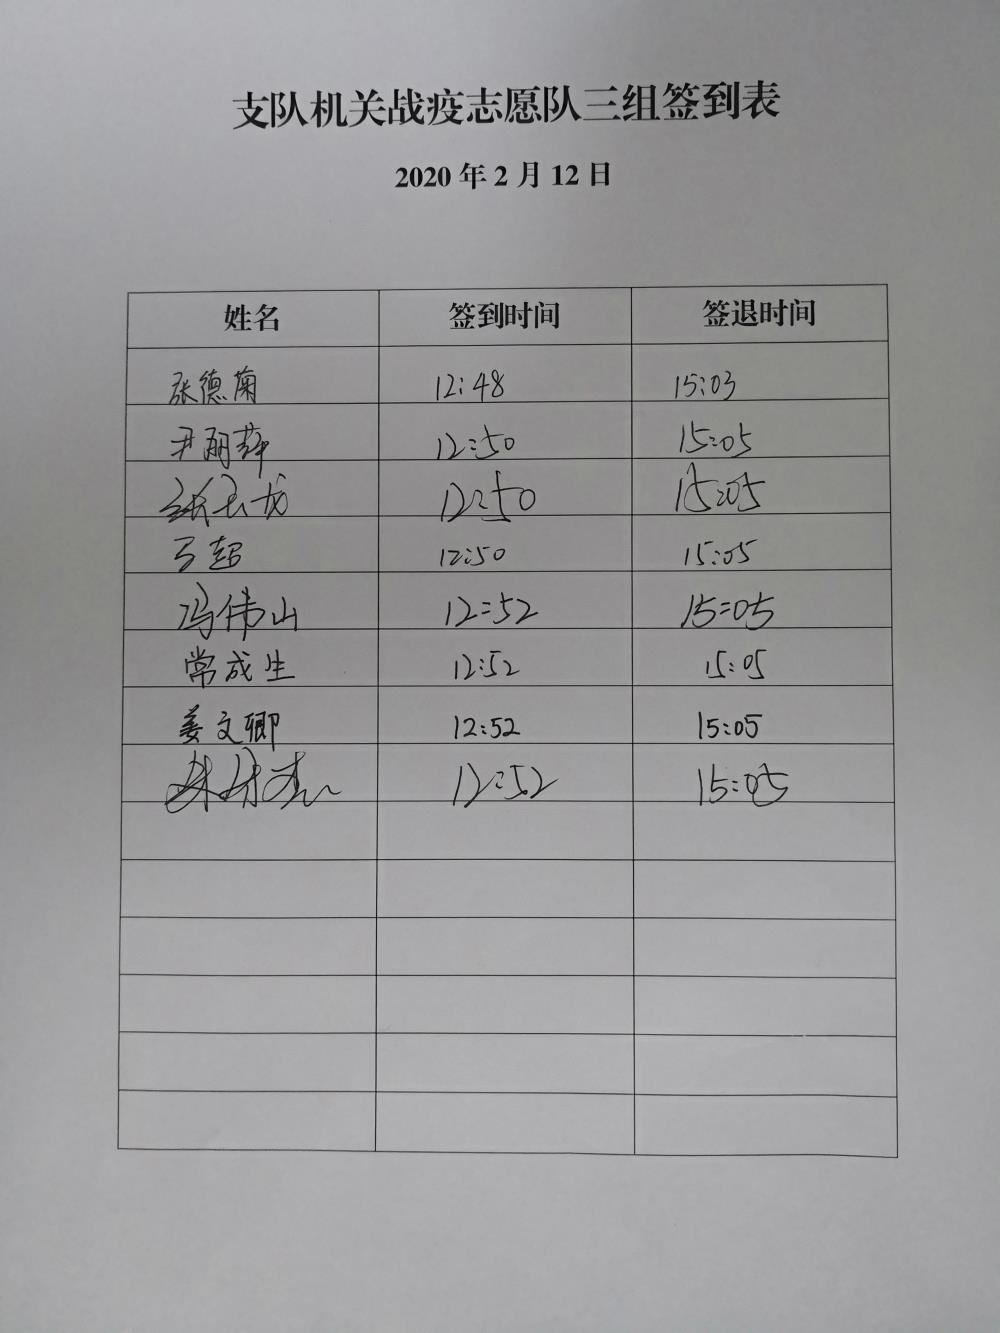 支队机关战疫志愿队三组签到表
2020 年 2 月 12 日
姓名 签到时间 签退时间
张德菊 12:48 15:03
尹丽萍 12:50 15:05
12:50 15:05
马超 12:50 15:05
冯伟山 12:52 15:05
常成生 12:52 15:05
姜文卿 12:52 15:05
12:52 15:05